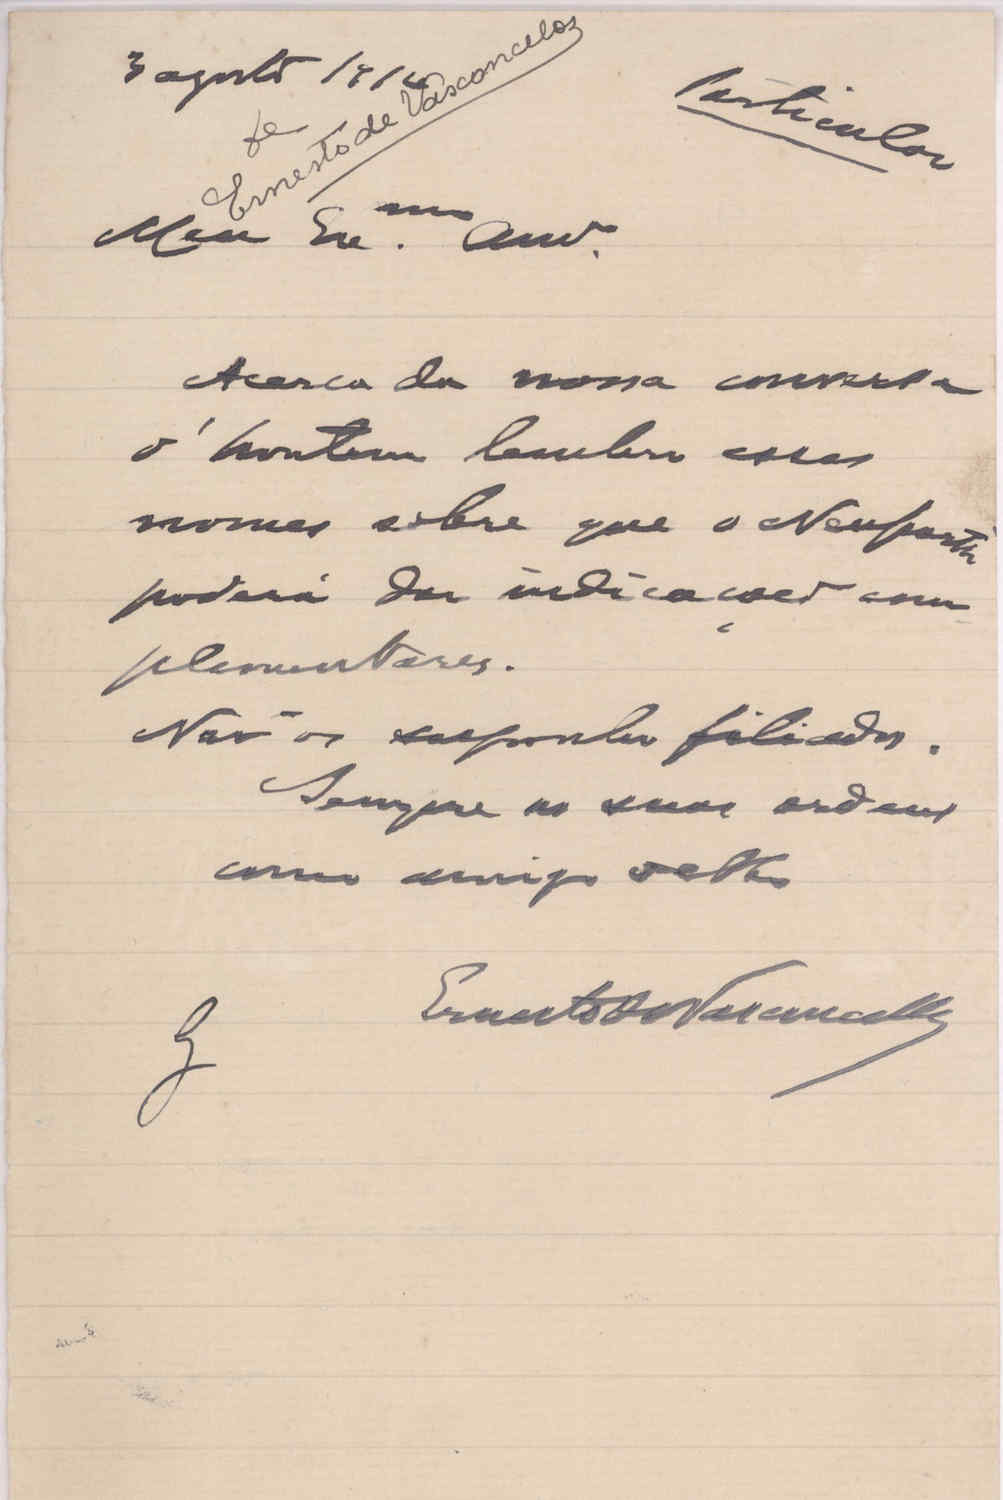 3 agosto 191
Particular
de
Ernesto de Vasconcelos
Meu Ex.mo Amo.
Acerca da nossa conversa
d'hontem lembro esses
nomes sobre que o Neuparth
poderá dar indicações com
plementares.
Não os supponho filiados.
Sempre ás suas ordens
como amigo velho
Ernesto de Vasconcellos